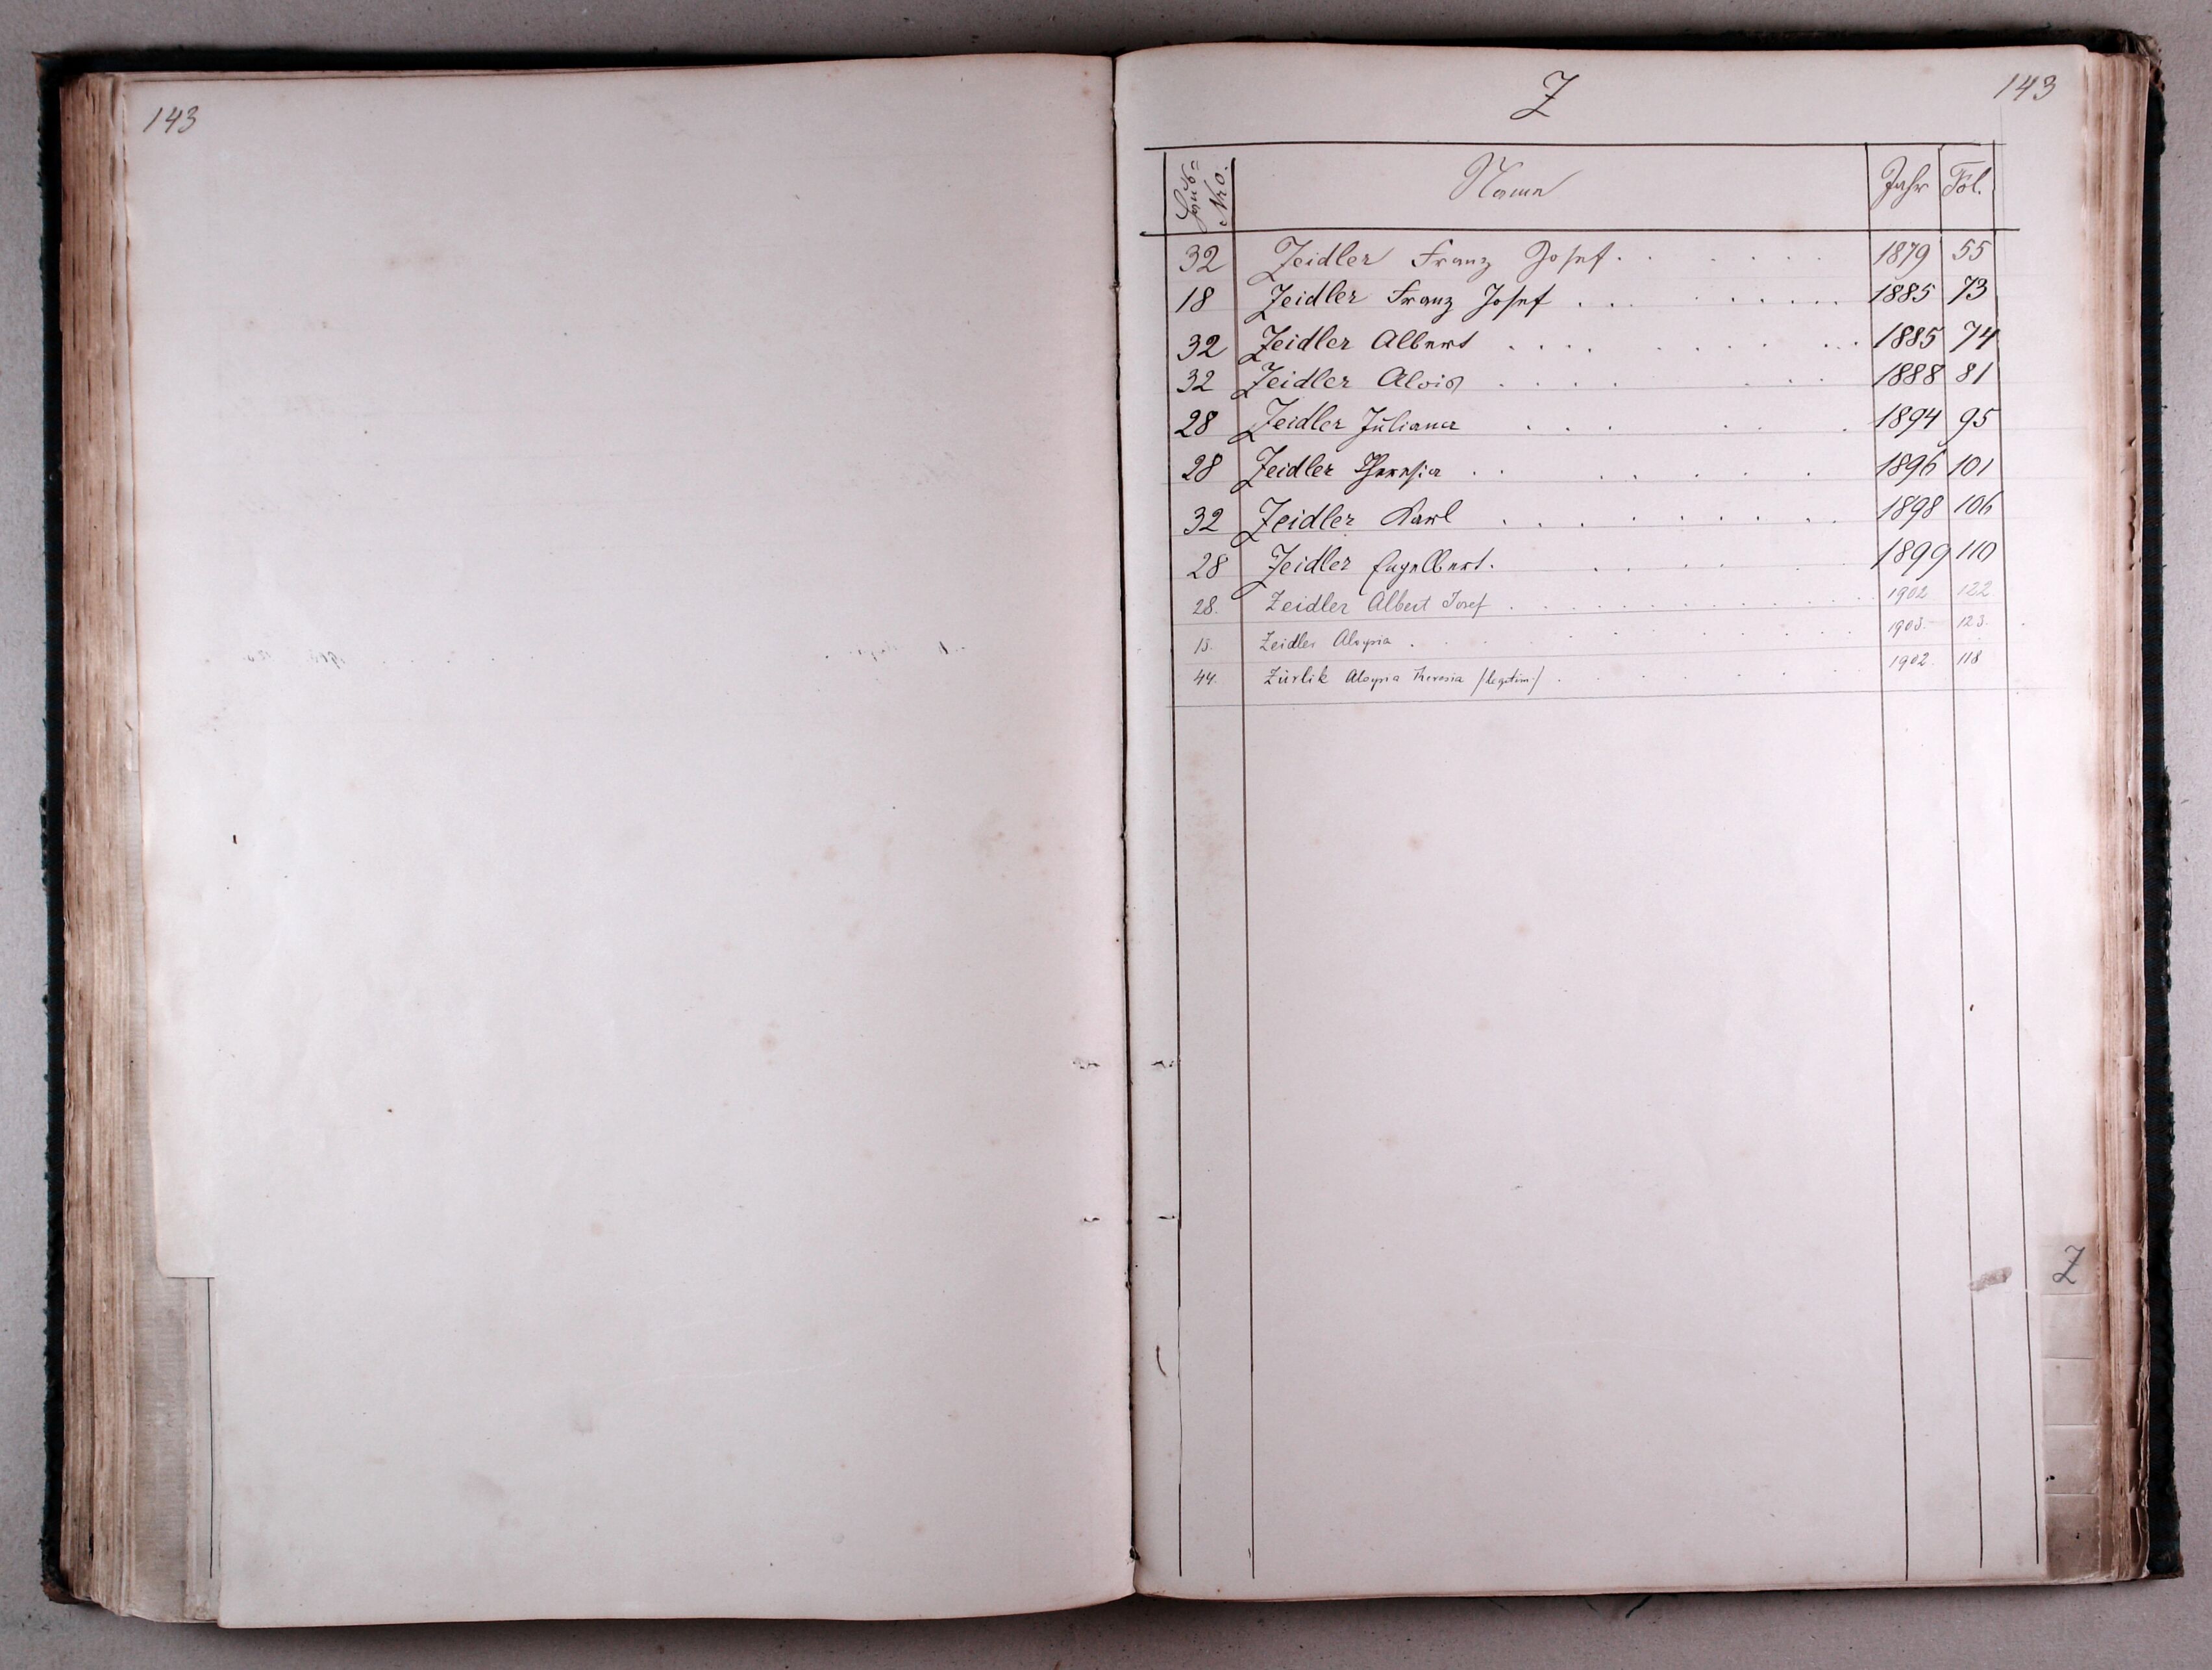 143
Z
143
Haus-Nro.
Name
Jahr
Fol.
32 Zeidler Franz Josef. 1879 55
18 Zeidler Franz Josef 1885 73
32 Zeidler Albert 1885 74
32 Zeidler Alois 1888 81
28 Zeidler Juliana 1894 95
28 Zeidler Theresia 1896 101
32 Zeidler Karl 1898 106
28 Zeidler Engelbert. 1899 110
28. Zeidler Albert Josef 1902 122.
Zeidler Aloysia 1903. 123.
44. Zürlik Aloysia Theresia /legitim./ 1902. 118
Z